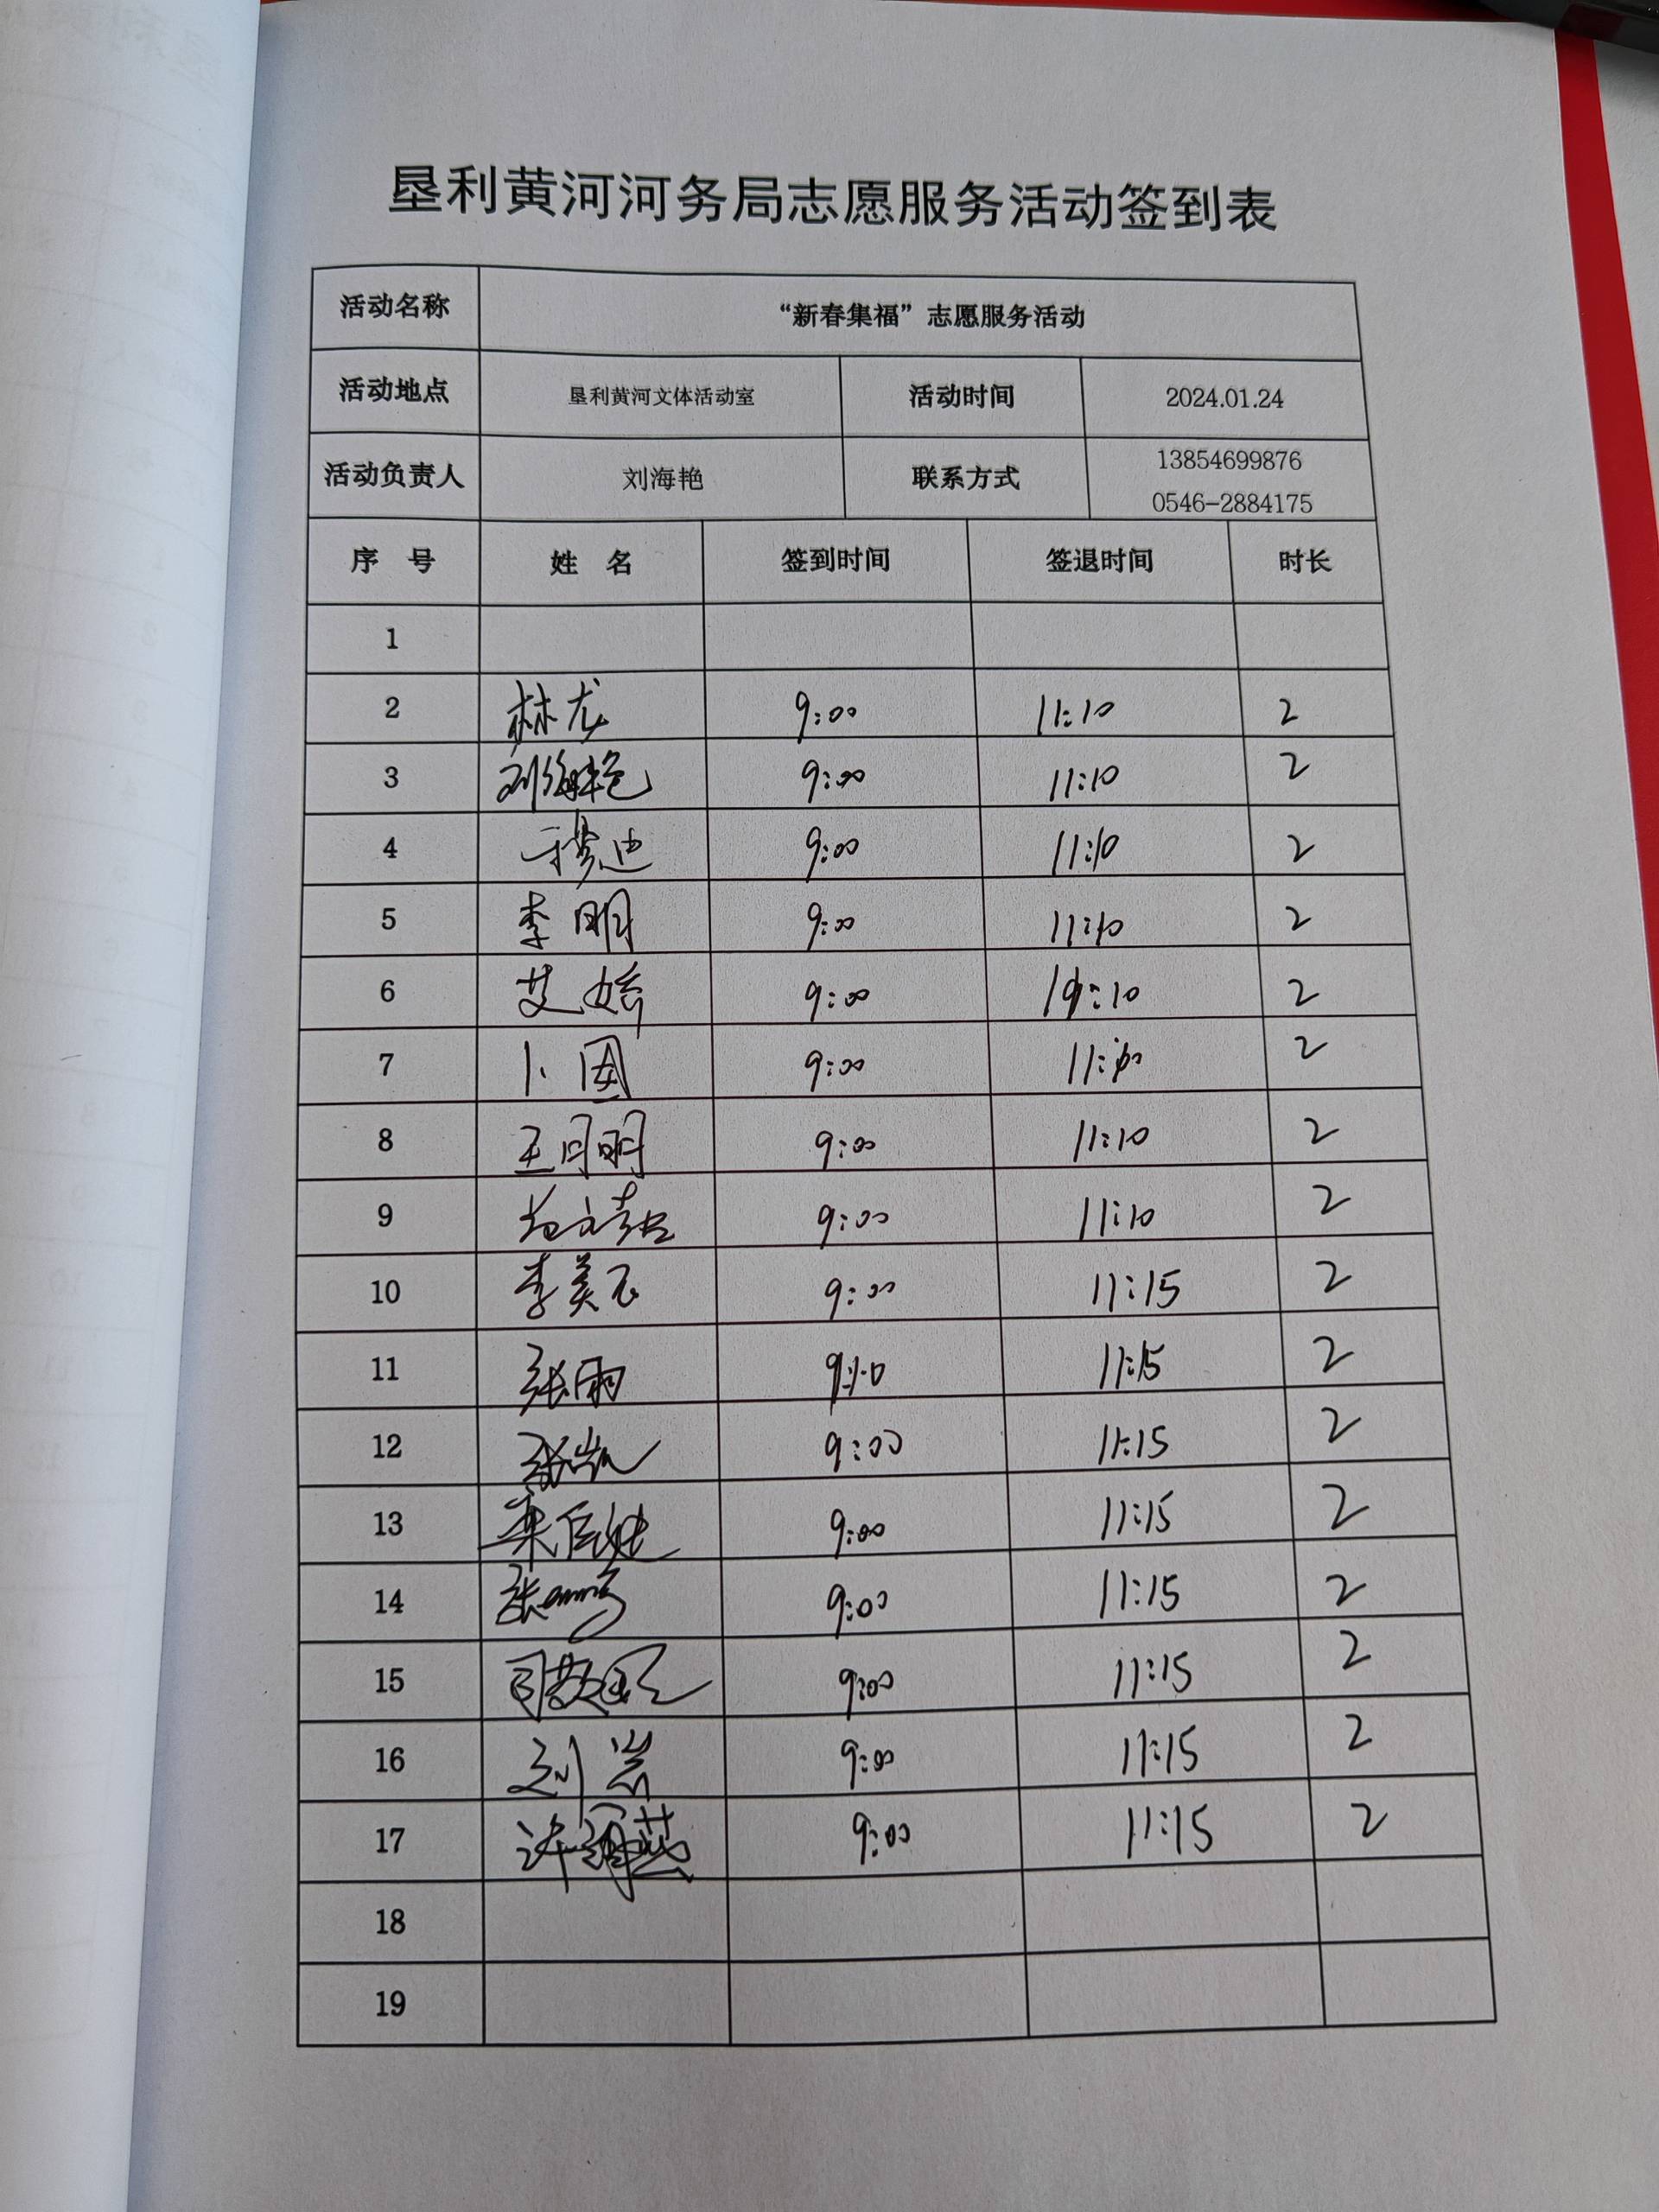 垦利黄河河务局志愿服务活动签到表
活动名称 “新春集福”志愿服务活动
活动地点 垦利黄河文体活动室 活动时间 2024.01.24
活动负责人 刘海艳 联系方式 13854699876
0546-2884175
序 号 姓 名 签到时间 签退时间 时长
1
2 林龙 9:00 11:10 2
3 刘海艳 9:00 11:10 2
4 9:00 11:10 2
5 李明 9:00 11:10 2
6 艾婷 9:00 2
7 9:00 2
8 王月明 9:00 11:10 2
9 9:00 11:10 2
10 李美玉 9:00 11:15 2
11 张雨 11:15 2
12 张凯 9:00 11:15 2
13 9:00 11:15 2
14 张 9:00 11:15 2
15 司 9:00 11:15 2
16 刘岩 9:00 11:15 2
17 许 9:00 11:15 2
18
19